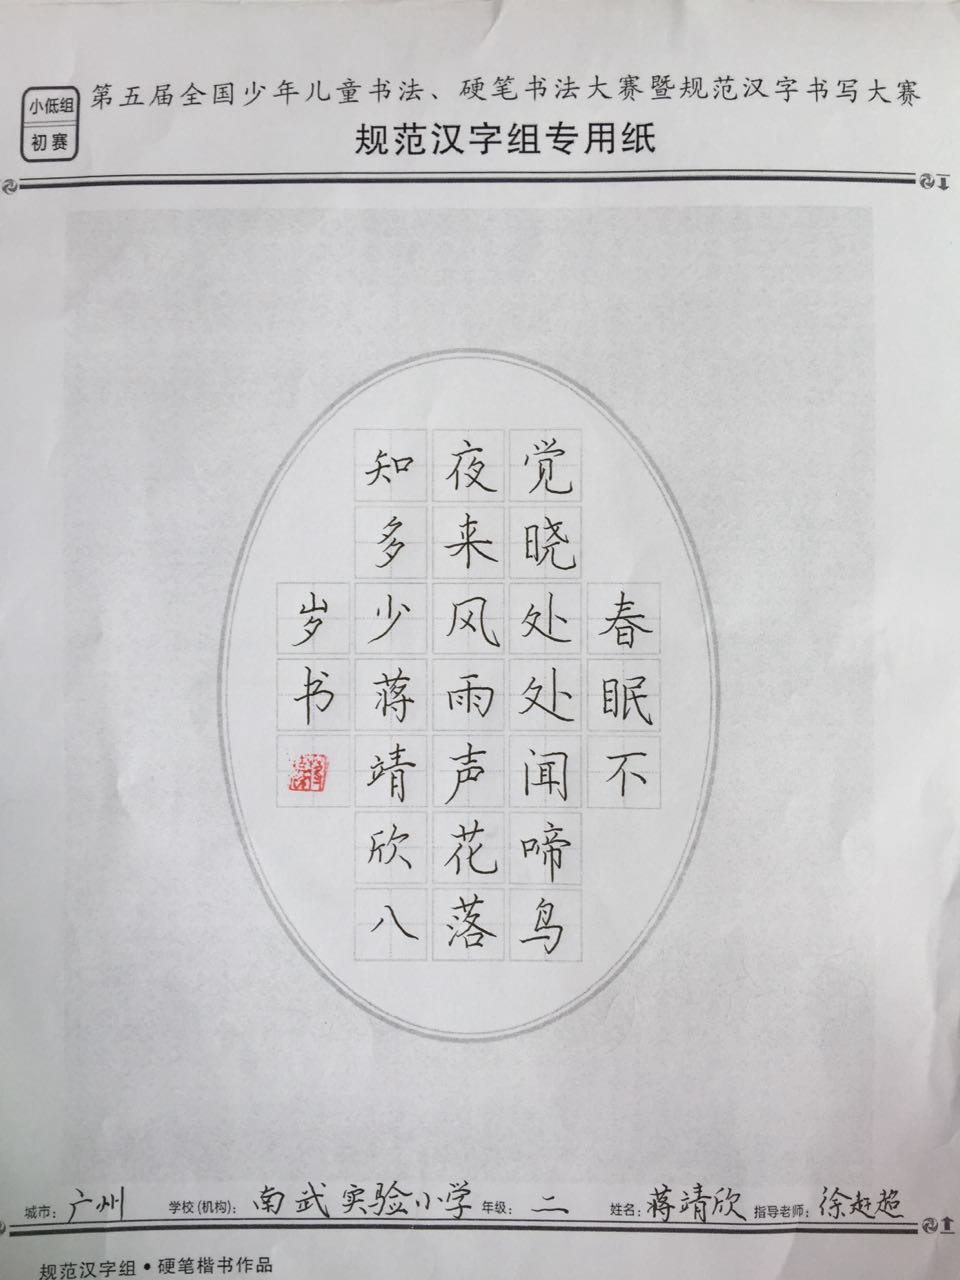 小低组
初赛
第五届全国少年儿童书法、硬笔书法大赛暨规范汉字书写大赛
规范汉字组专用纸
春眠不
觉晓处处闻啼鸟
夜来风雨声花落
知多少蒋靖欣八
岁书
城市：广州 学校(机构)：南武实验小学 年级：二 姓名：蒋靖欣 指导老师：徐赵超
规范汉字组•硬笔楷书作品